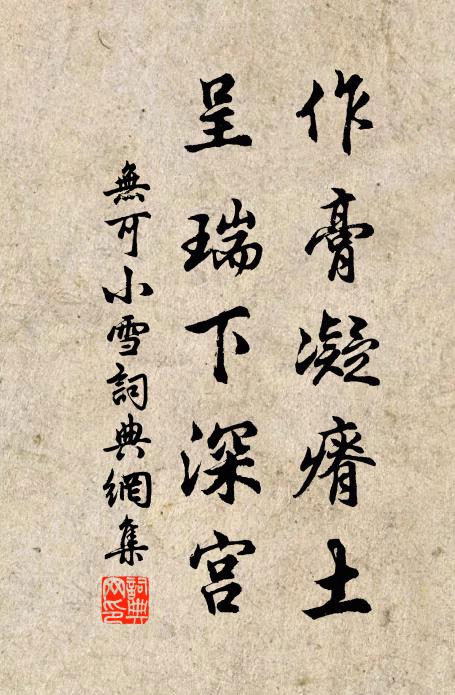 作膏凝瘠土
呈瑞下深宫
無可小雪詞典網集
詞典网印